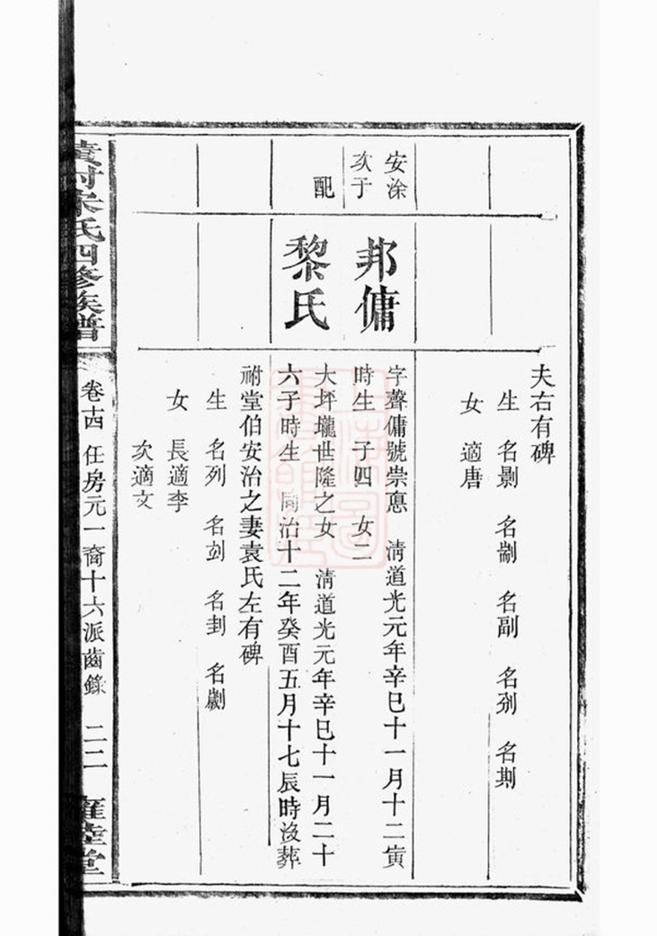 夫右有碑
生 名剔 名 名副 名列 名剘
女 適唐
安涂
次于
邦傭
字聲傭號崇惪 清道光元年辛巳十一月十二寅
時生 子四 女二
配
黎氏
大坪壠世隆之女 清道光元年辛巳十一月二十
六子時生 同治十二年癸酉五月十七辰時沒葬
祔堂伯安治之妻袁氏左有碑
生 名列 名刻 名 名劌
女 長適李
次適文
宋氏四修族譜
卷十四 任房元一裔十六派齒錄 二二
雍睦堂